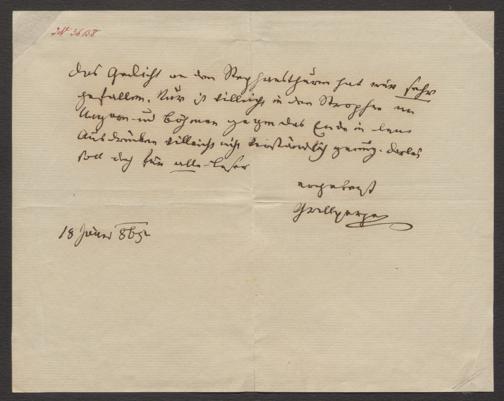 Das Gedicht an den Stephansthurm hat mir sehr
gefallen. Nur ist vielleicht in den Strophen an
Ungarn und Böhmen gegen das Ende in den
Ausdrücken vielleicht nicht verständlich genug.
soll doch für alle Leser
ergebenst
Grillparzer
18 Jäner 865